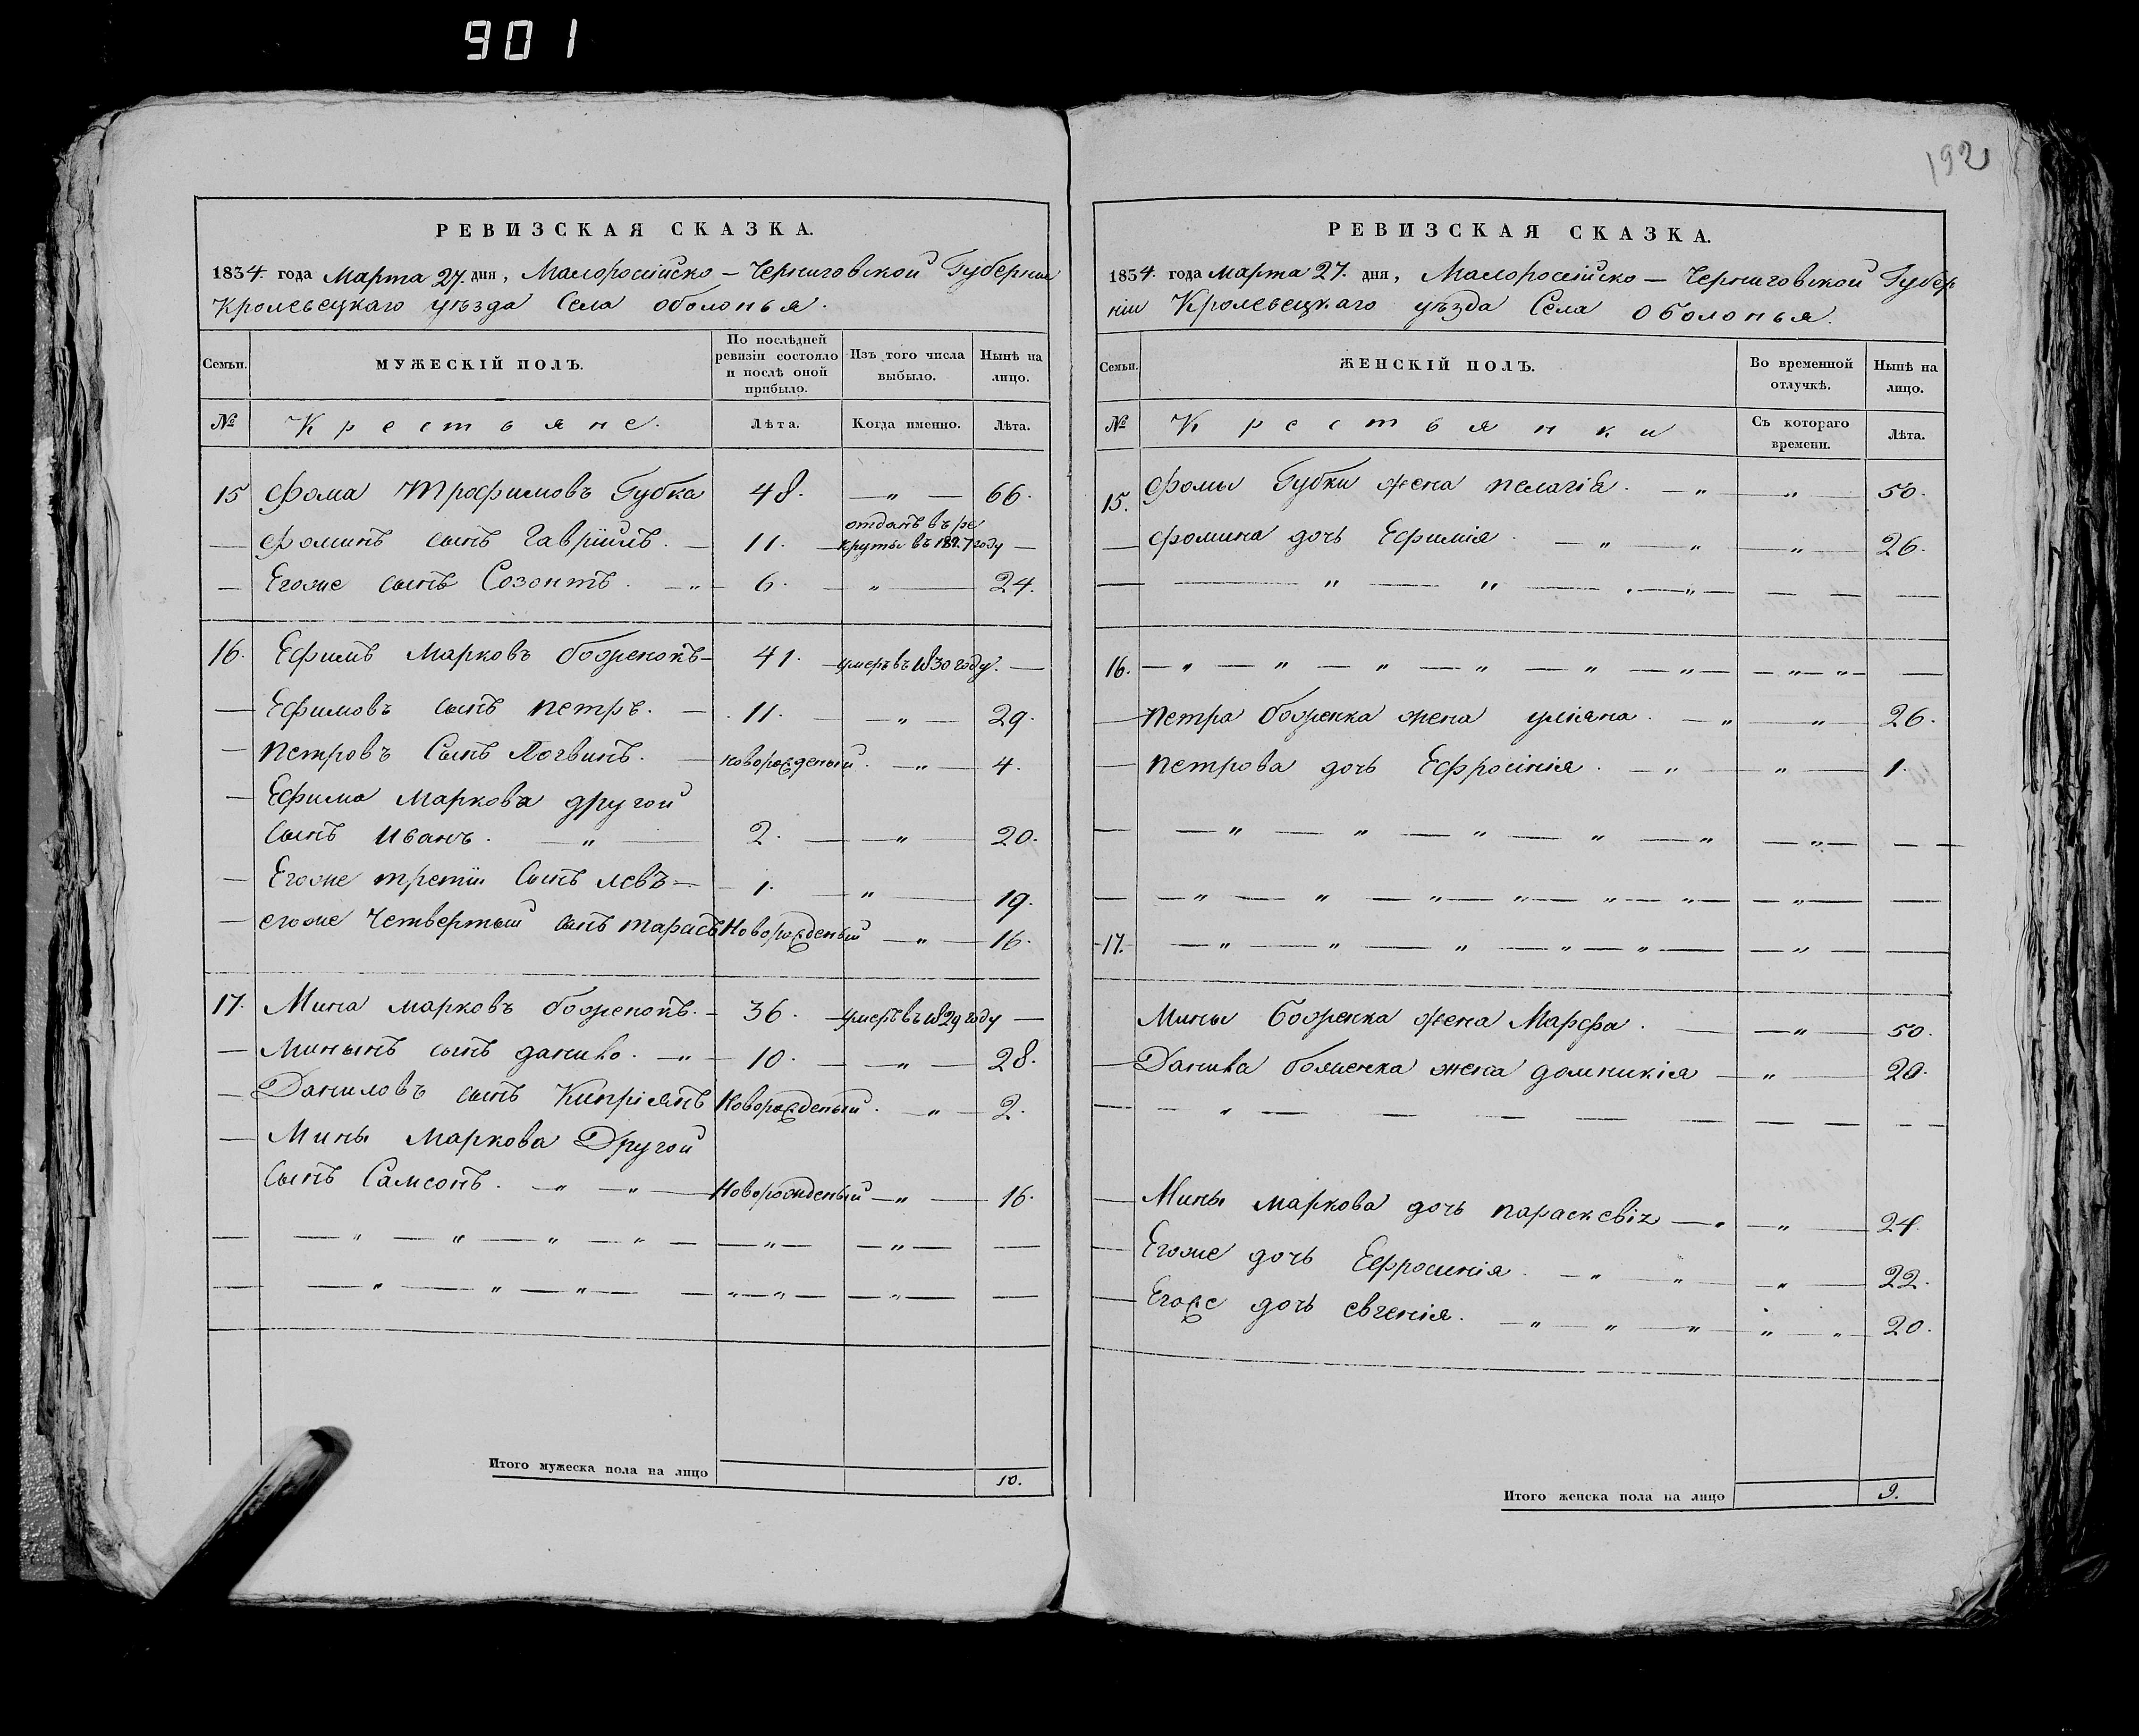 901
192
РЕВИЗСКАЯ СКАЗКА.
1834. года Марта 27. дня, Малоросійско – Черниговской Губерніи
Кролевецкаго уѣзда Села оболонья.
Семьи. МУЖЕСКІЙ ПОЛЪ. По послѣдней ревизіи состояло и послѣ оной прибыло. Изъ того числа выбыло. Нынѣ на лицо.
№ Крестьяне. Лѣта. Когда именно. Лѣта.
15 Фома Трофимовъ Губка 48. — „ — 66.
— Фоминъ сынъ Гавріилъ. — 11. — отданъ въ рекруты въ 1827 году —
— Егоже сынъ Созонтъ. — „ 6. — „ — 24.
16. Ефимъ Марковъ боженокъ — 41. — умеръ въ 1830 году. —
— Ефимовъ сынъ петръ. — 11. — „ — 29.
— петровъ Сынъ Логвинъ. — новорожденый. — „ — 4.
— Ефима Маркова другой
сынъ иванъ. — „ — 2. — „ — 20.
— Егоже третіи Сынъ левъ — 1. — „ — 19.
— егоже Четвертый сынъ тарасъ Новорожденый — „ — 16.
17. Мина марковъ боженокъ. — 36. — умеръ въ 1829 году —
— Мининъ сынъ данило. — „ — 10. — „ — 28.
— Даниловъ сынъ Кипріянъ Новорожденый. — „ — 2.
— Мины Маркова Другой
Сынъ Самсонъ. — „ — „ — Новорожденый — „ — 16.
— — „ — „ — „ — „ — — „ — — „ — —
— — „ — „ — „ — — „ — „ — — „ — —
Итого мужеска пола на лицо 10.
РЕВИЗСКАЯ СКАЗКА.
1834. года марта 27. дня, Малоросійско — Черниговской Губер
ніи Кролевецкаго уѣзда Села оболонья.
Семьи. ЖЕНСКІЙ ПОЛЪ. Во временной отлучкѣ. Нынѣ на лицо.
№ Крестьянки Съ котораго времени. Лѣта.
15. Фомы Губки жена пелагія. — „ — „ — 50.
— Фомина дочь Ефимія. — „ — „ — „ — 26.
— — „ — „ — „ — — — —
16. — „ — „ — „ — „ — „ — „ — — „ — „ — —
— петра боженка жена уліяна. — „ — „ — 26.
— петрова дочь Ефросинія. — „ — „ — 1.
— — „ — „ — „ — „ — „ — „ — — —
— — „ — „ — „ — „ — „ — „ — — „ — —
17. — „ — „ — „ — „ — „ — — „ — —
Мины Боженка жена Марфа. — — „ — 50.
— Данила боженка жена домникія — „ — 20.
— — „ — — — — — — — — —
— Мины маркова дочь параскевія — „ — „ — 24.
— Егоже дочь Ефросинія. — „ — „ — „ — 22.
— Егоже дочь евгенія. — „ — „ — „ — „ — „ — 20.
Итого женска пола на лицо 9.